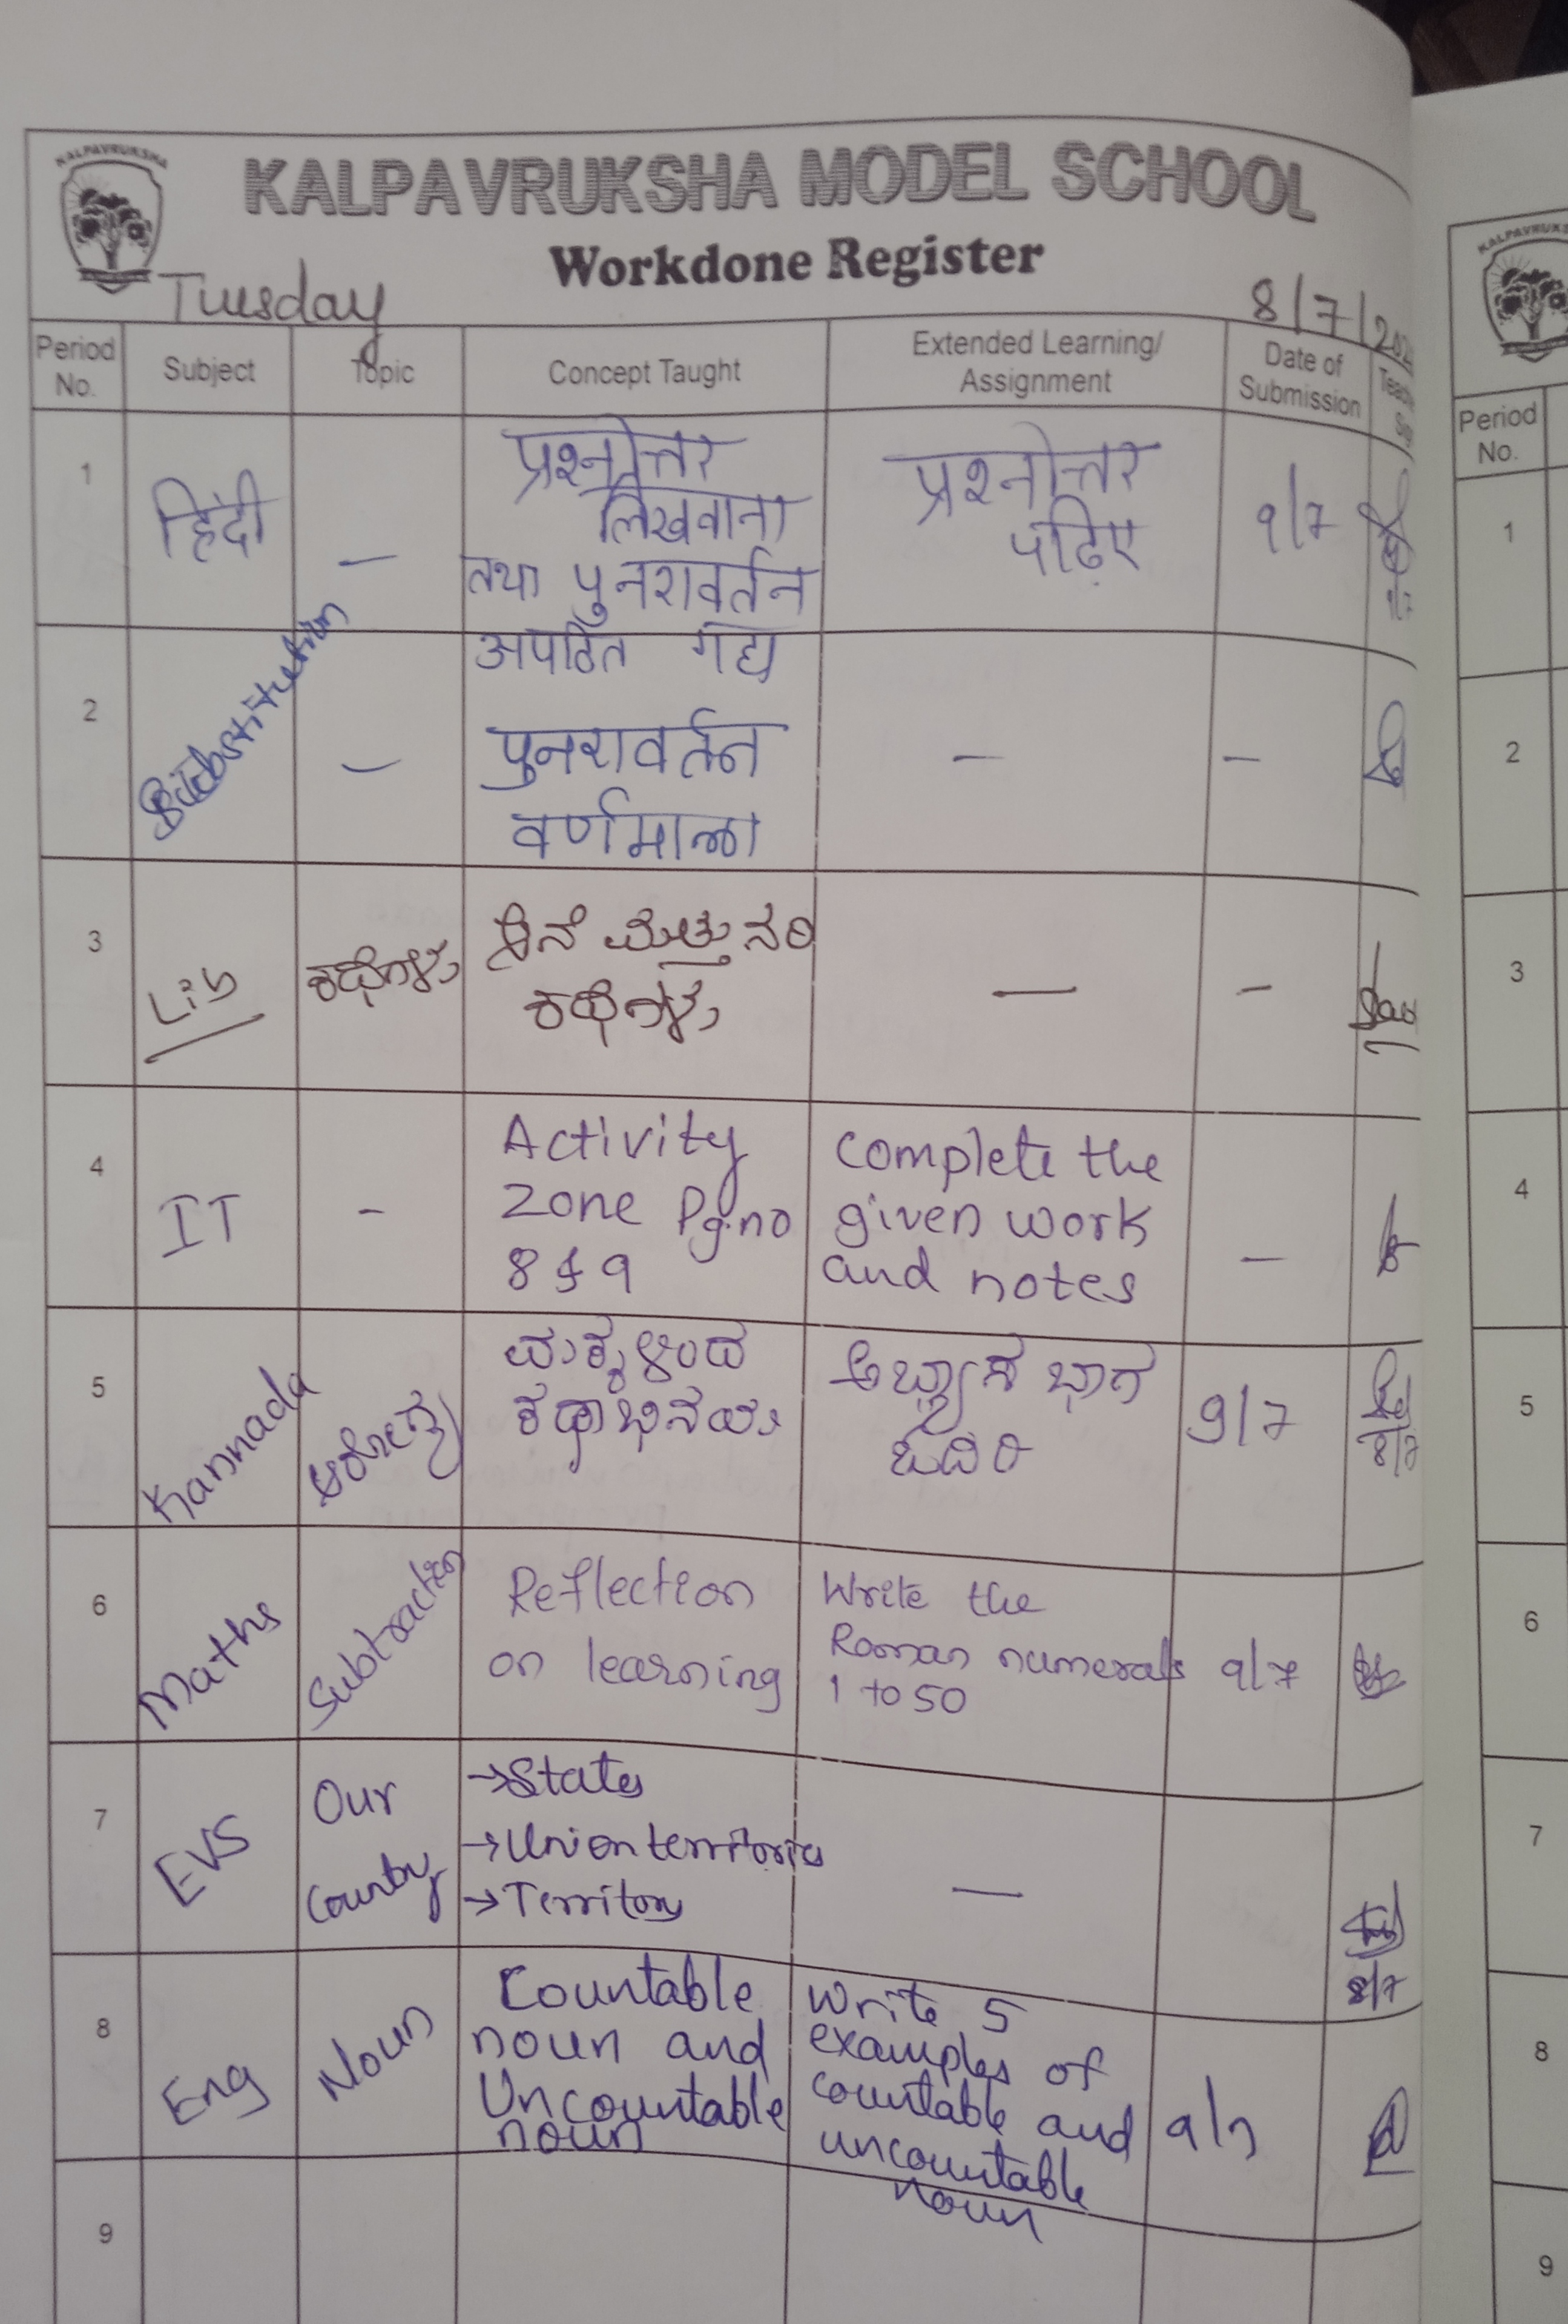 KALPAVRUKSHA
KALPAVRUKSHA MODEL SCHOOL
Workdone Register
Tuesday
8/7/202
Period No.
Subject
Topic
Concept Taught
Extended Learning/
Assignment
Date of
Submission
1
हिंदी
–
प्रश्नोत्तर
लिखवाना
तथा पुनरावर्तन
अपठित गद्य
प्रश्नोत्तर
पढ़िए
9/7
2
Substitution
–
पुनरावर्तन
वर्णमाला
–
–
3
Lib
ಕಥೆಗಳು
ಆನೆ ಮತ್ತು ನರಿ
ಕಥೆಗಳು
–
–
4
IT
-
Activity
Zone Pg.no
8 & 9
complete the
given work
and notes
–
5
Kannada
ಆರೋಗ್ಯ
ಮಕ್ಕಳಿಂದ
ಕಥಾಭಿನಯ
ಅಭ್ಯಾಸ ಭಾಗ
ಓದಿರಿ
9/7
8/7
6
Maths
Subtraction
Reflection
on learning
Write the
Roman numerals
1 to 50
9/7
7
EVS
Our
Country
→States
→Union territories
→Territory
—
8/7
8
Eng
Noun
Countable
noun and
Uncountable
noun
Write 5
examples of
countable and
uncountable
noun
9/7
9
Period
No.
1
2
3
4
5
6
7
8
9